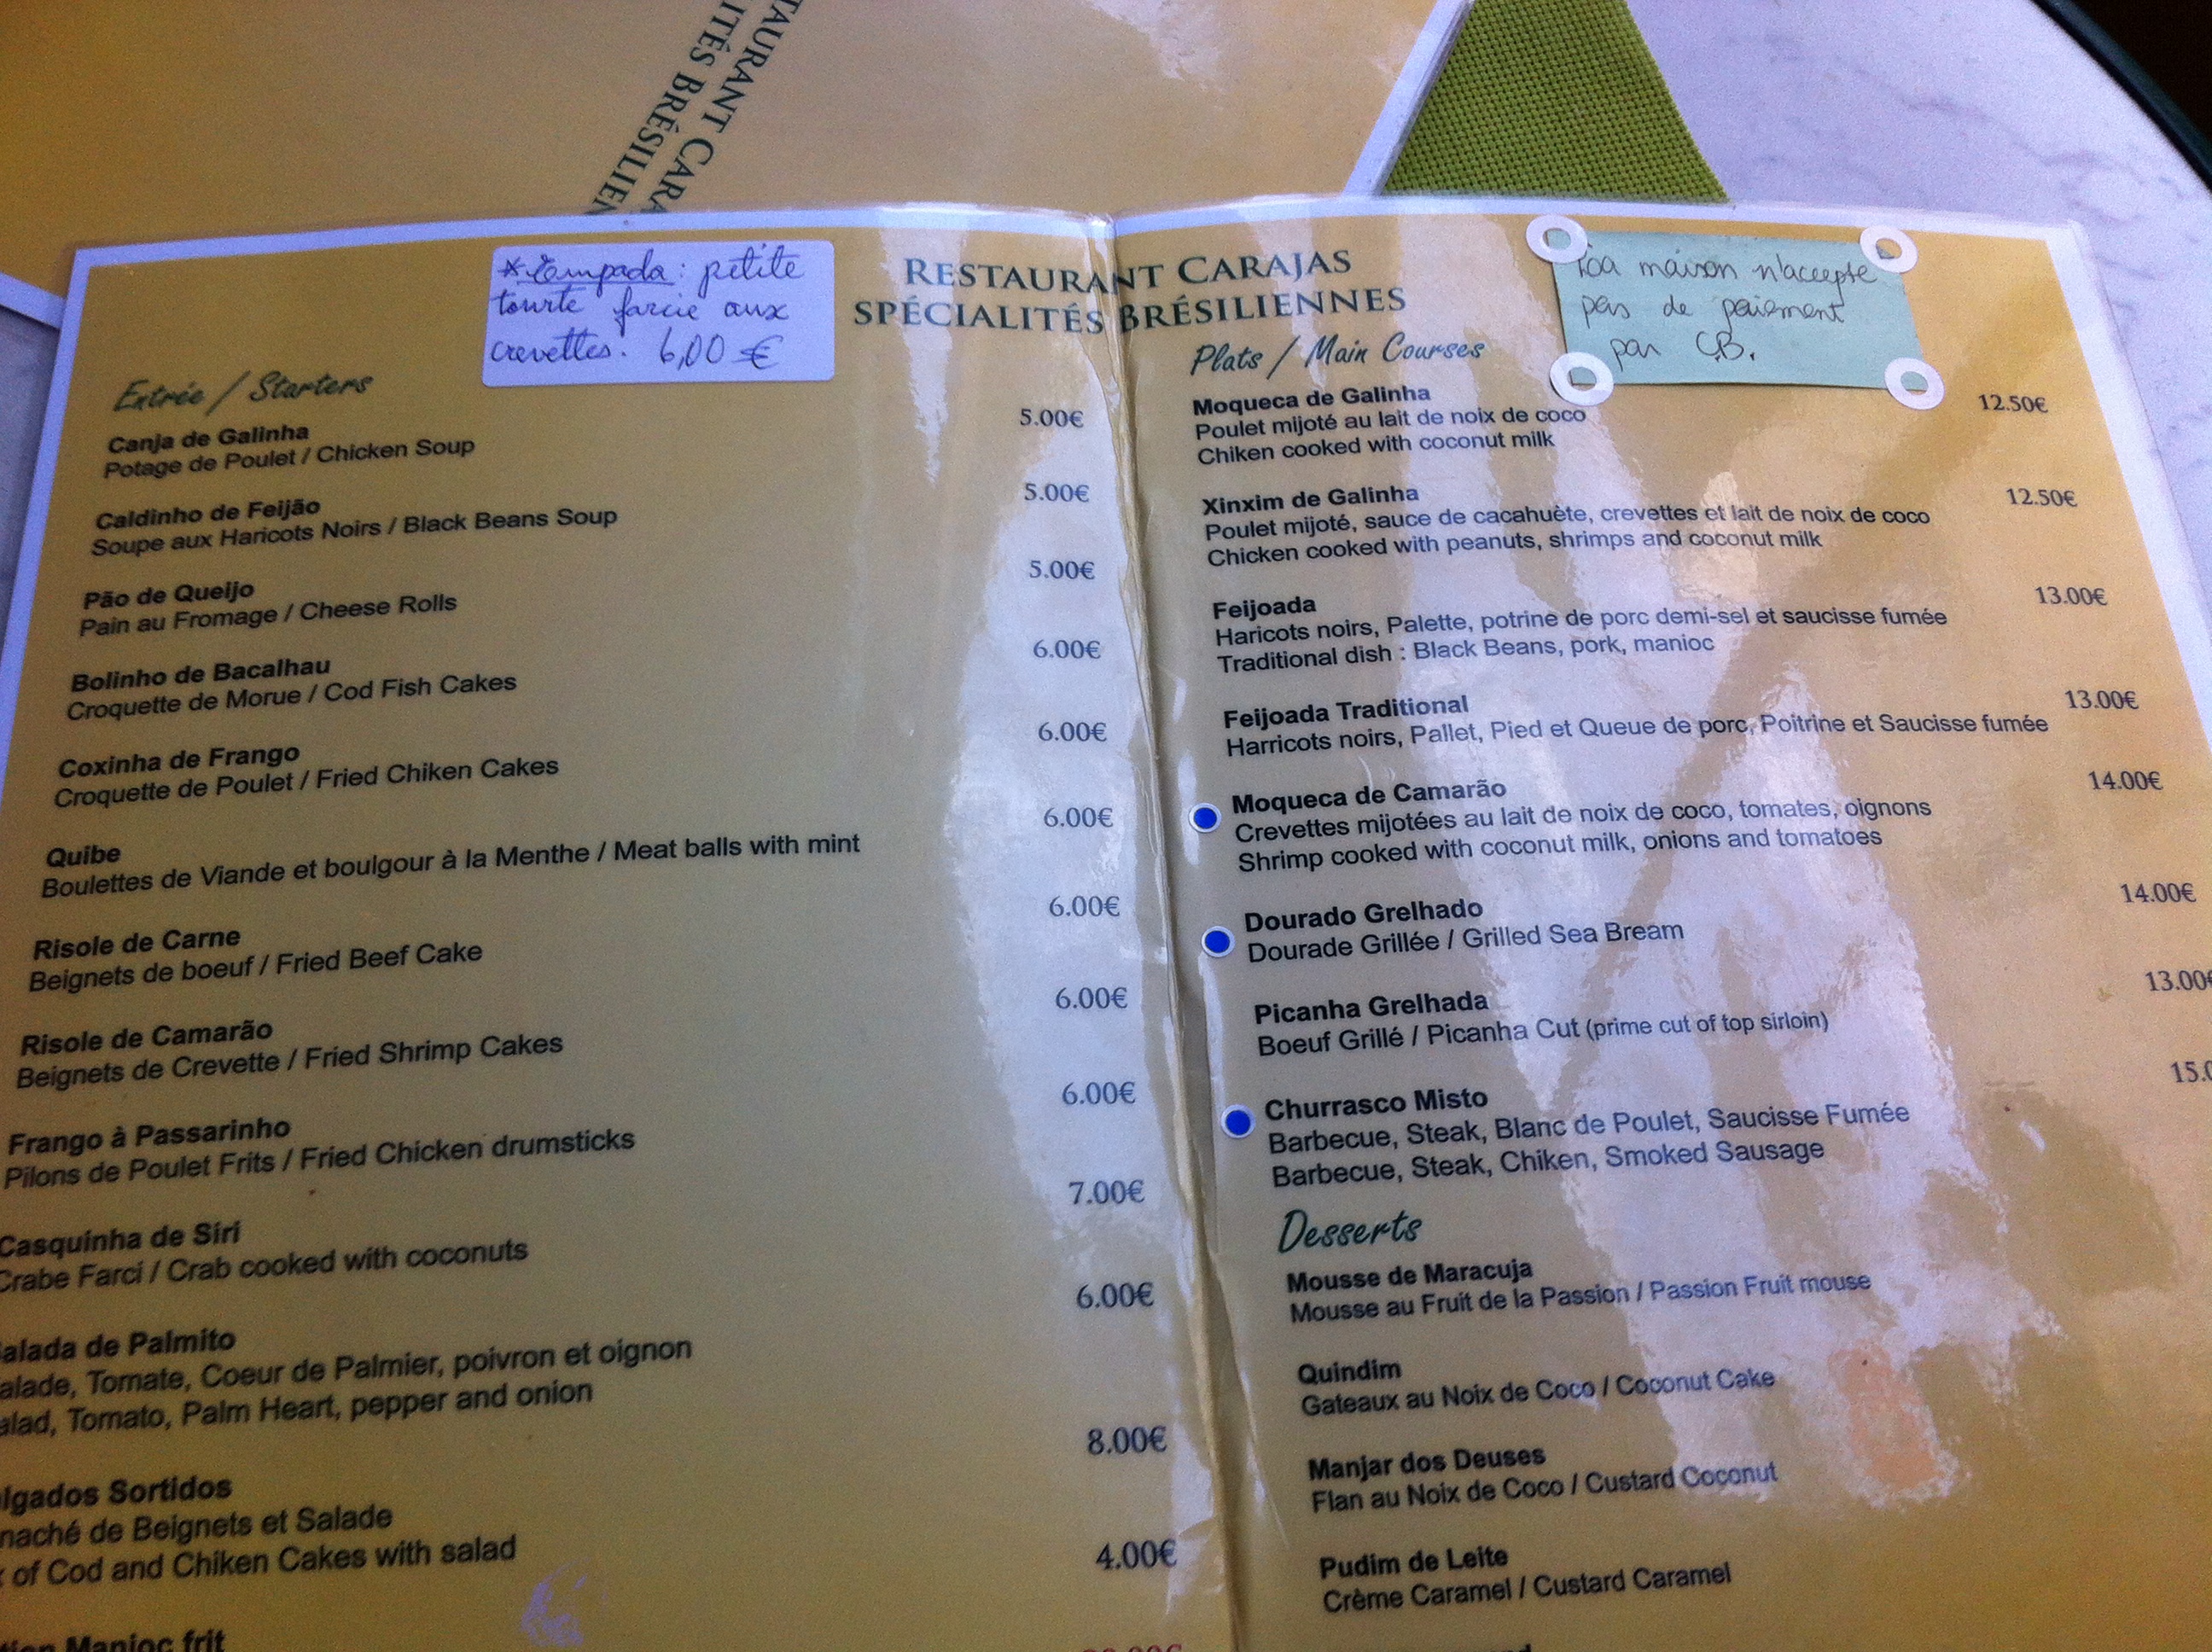 TAURANT CARA
ITÉS BRÉSILIEN
RESTAURANT CARAJAS
SPÉCIALITÉS BRÉSILIENNES
* Empada : petite
tourte farcie aux
crevettes. 6,00 €
Entrée / Starters
Canja de Galinha 5.00€
Potage de Poulet / Chicken Soup
Caldinho de Feijão 5.00€
Soupe aux Haricots Noirs / Black Beans Soup
Pão de Queijo 5.00€
Pain au Fromage / Cheese Rolls
Bolinho de Bacalhau 6.00€
Croquette de Morue / Cod Fish Cakes
Coxinha de Frango 6.00€
Croquette de Poulet / Fried Chiken Cakes
Quibe 6.00€
Boulettes de Viande et boulgour à la Menthe / Meat balls with mint
Risole de Carne 6.00€
Beignets de boeuf / Fried Beef Cake
Risole de Camarão 6.00€
Beignets de Crevette / Fried Shrimp Cakes
Frango à Passarinho 6.00€
Pilons de Poulet Frits / Fried Chicken drumsticks
Casquinha de Siri 7.00€
Crabe Farci / Crab cooked with coconuts
alada de Palmito 6.00€
alade, Tomate, Coeur de Palmier, poivron et oignon
alad, Tomato, Palm Heart, pepper and onion
lgados Sortidos 8.00€
naché de Beignets et Salade
of Cod and Chiken Cakes with salad
tion Manioc frit 4.00€
La maison n'accepte
pas de paiement
par C.B.
Plats / Main Courses
Moqueca de Galinha 12.50€
Poulet mijoté au lait de noix de coco
Chiken cooked with coconut milk
Xinxim de Galinha 12.50€
Poulet mijoté, sauce de cacahuète, crevettes et lait de noix de coco
Chicken cooked with peanuts, shrimps and coconut milk
Feijoada 13.00€
Haricots noirs, Palette, potrine de porc demi-sel et saucisse fumée
Traditional dish : Black Beans, pork, manioc
Feijoada Traditional 13.00€
Harricots noirs, Pallet, Pied et Queue de porc, Poitrine et Saucisse fumée
Moqueca de Camarão 14.00€
Crevettes mijotées au lait de noix de coco, tomates, oignons
Shrimp cooked with coconut milk, onions and tomatoes
Dourado Grelhado 14.00€
Dourade Grillée / Grilled Sea Bream
Picanha Grelhada 13.00€
Boeuf Grillé / Picanha Cut (prime cut of top sirloin)
Churrasco Misto 15.0
Barbecue, Steak, Blanc de Poulet, Saucisse Fumée
Barbecue, Steak, Chiken, Smoked Sausage
Desserts
Mousse de Maracuja
Mousse au Fruit de la Passion / Passion Fruit mouse
Quindim
Gateaux au Noix de Coco / Coconut Cake
Manjar dos Deuses
Flan au Noix de Coco / Custard Coconut
Pudim de Leite
Crème Caramel / Custard Caramel